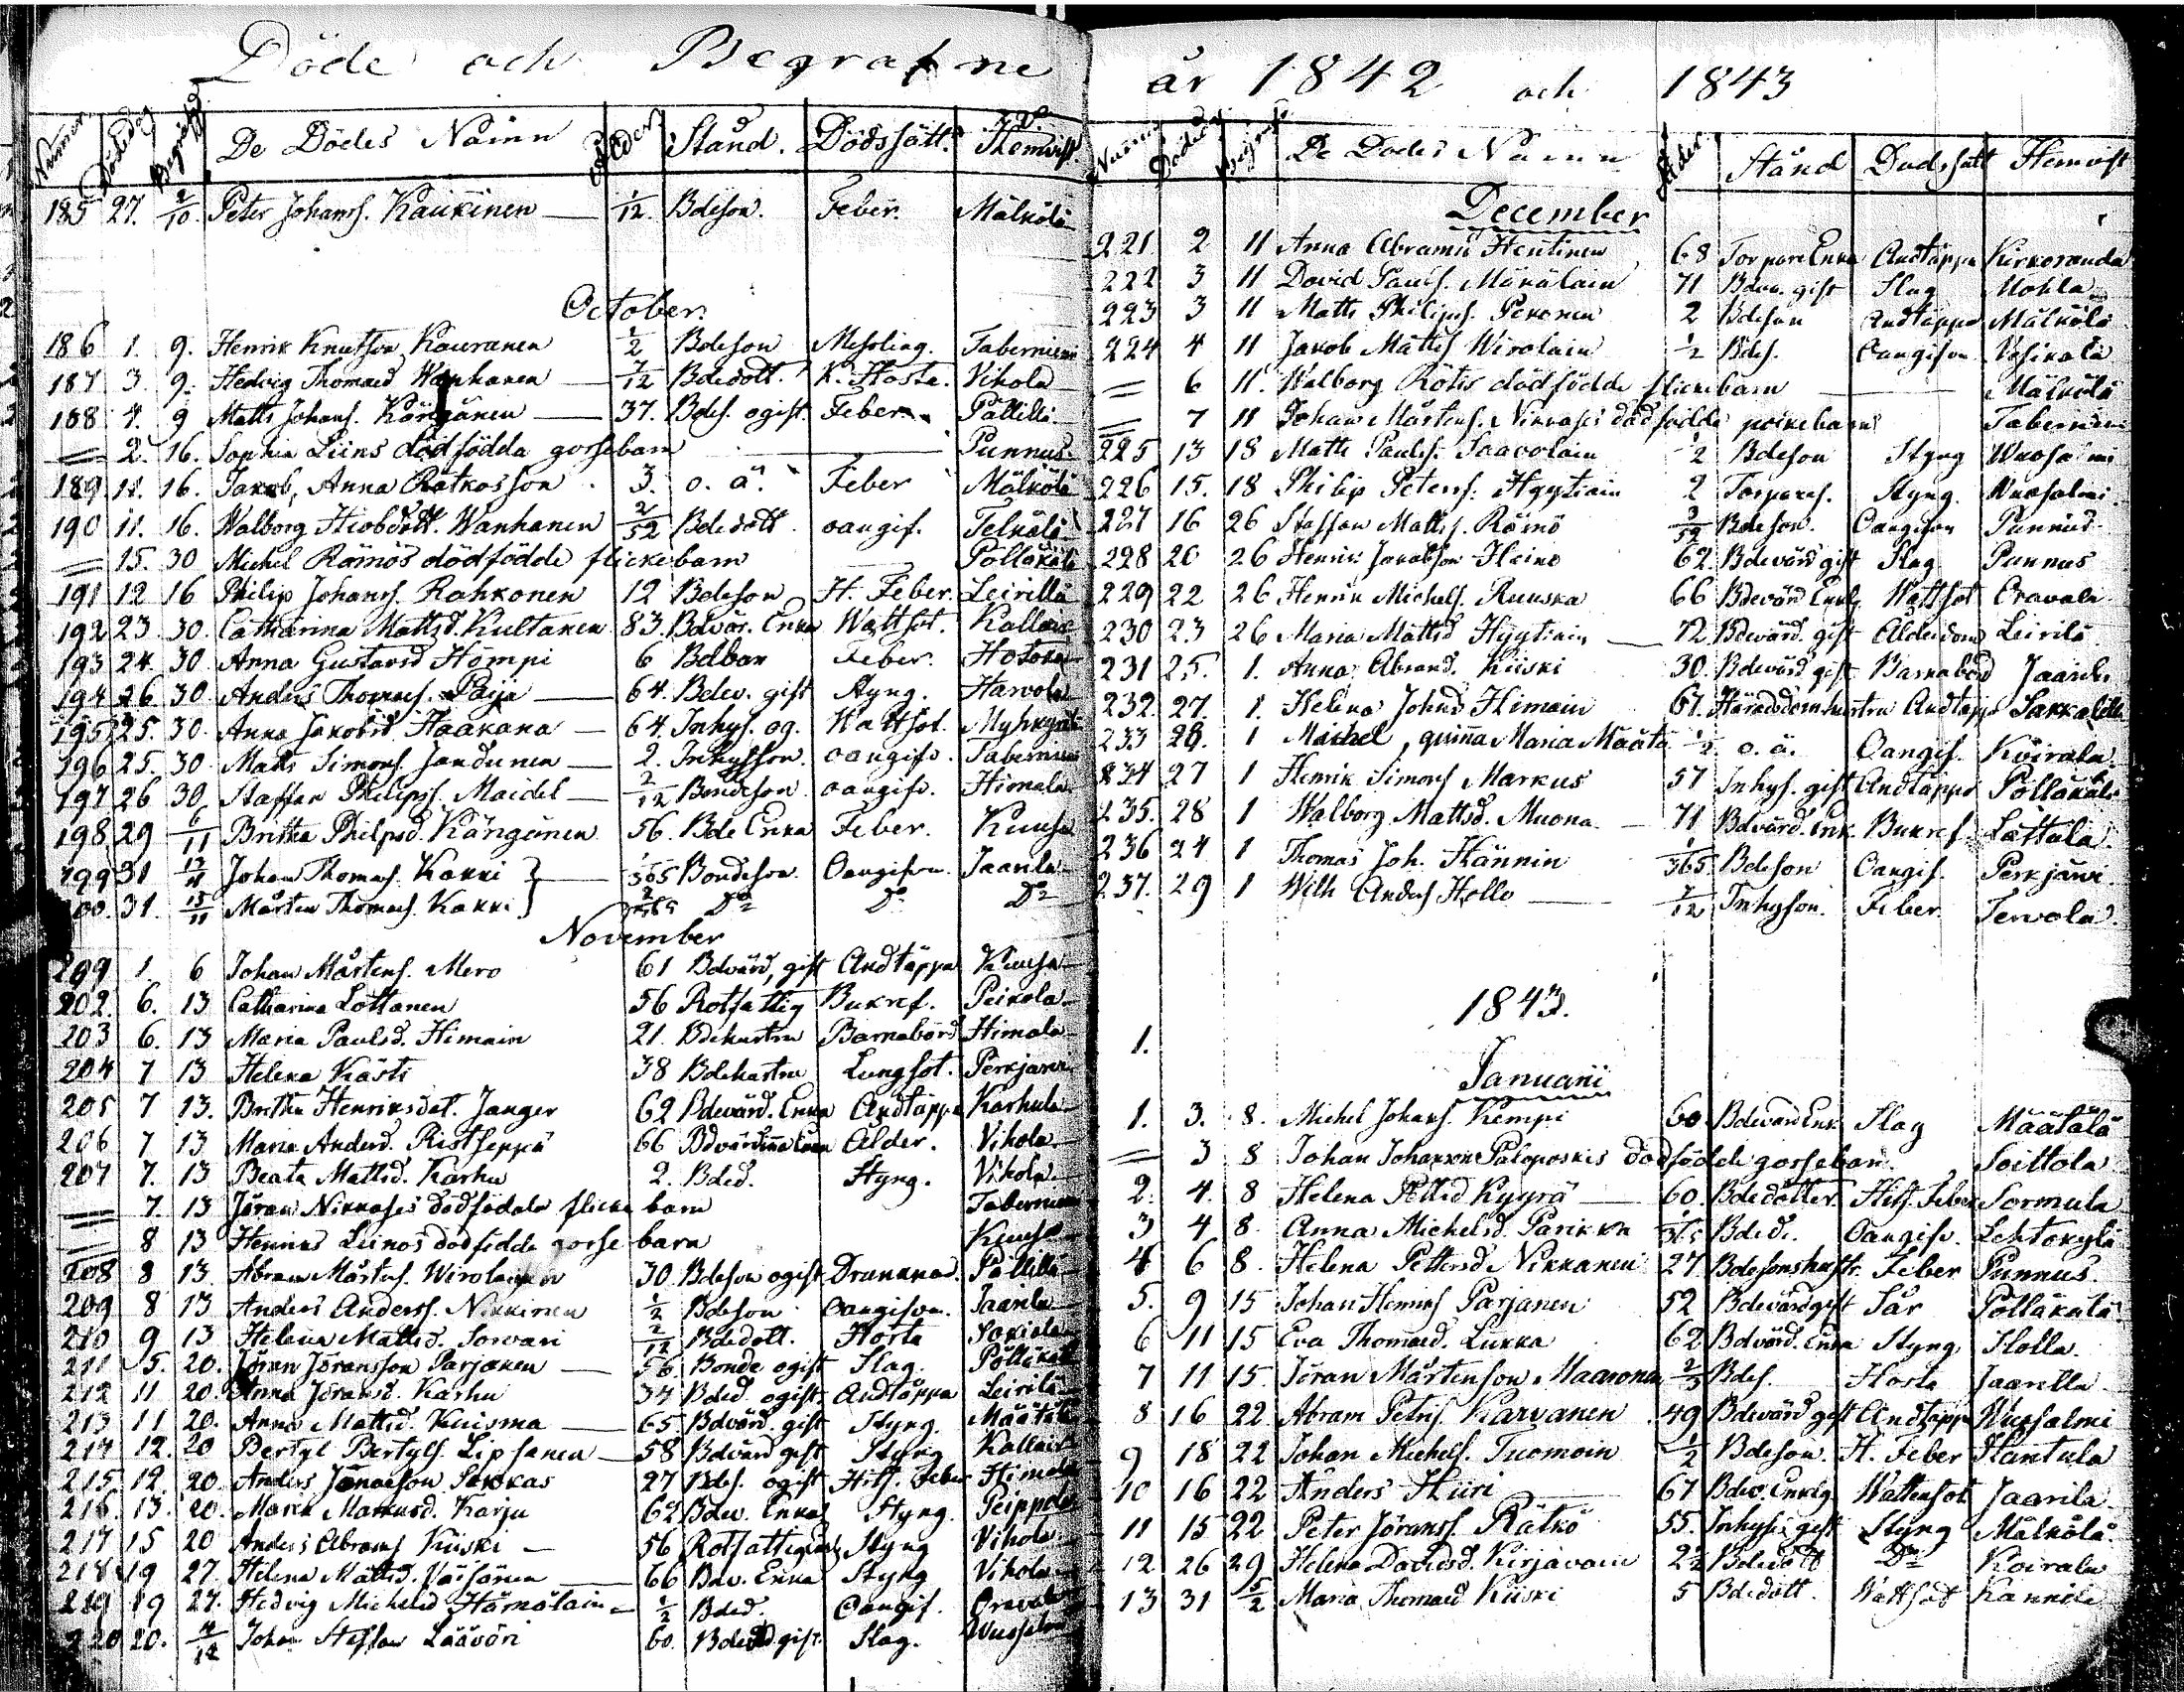 Döde och Begrafne
Nummer Dödsdag Begrafn:d De Dödes Namn Ålder Stånd. Dödssätt. Hemvist
185 27. 2/10. Peter Johanss. Kaukinen — 1/12. Bdeson. Feber. Mälkölä
October.
186 1. 9. Henrik Knutson Kauranen 1/2 Bdeson Messling. Tabernien
187 3. 9. Hedvig Thomasd Wanhanen — 7/12 Bdedott. K. Hosta. Vihola
188 4. 9 Matts Johans. — 37. Bdes. ogift. Feber Pällilä
= 2. 16. Sophia Leins dödfödda gossebarn Punnus
189 11. 16. Jakob, Anna Ratkosson 3. o. ä. Feber Mälkölä
190 11. 16. Walborg Hiobdott. Wanhanen 2/52 Bdedött oangif. Telkälä
= 15. 30 Michel Römös dödfödde flickebarn Pölläkälä
191 12 16 Philip Johans. Rahkonen 12 Bdeson H. Feber. Leirillä
192 23. 30. Catharina Mattsd. Kultanen 83. Bdvär. Enka Wattsot.
193 24. 30. Anna Gustavsd Hömpi 6 Bdbar Feber.
194 26 30. Anders Thomass. Paija — 64. Bdev. gift Styng. Harvola
195 25. 30. Anna Jakobsd Haakana — 64. Inhys. og. Wattsot.
196 25. 30 Matts Simons. Janduinen — 2. Inhysson. oangifv.
197 26 30. Staffan Philipss. Maidel — 2/12 Bondeson. oangifv. Himala
198 29 6/11 Britha Philpsd. Kängänen. 56. Bde Enka Feber. Kuusa
199 31 13/11 Johan Thomass. Kakki } 1/365 Bondeson. Oangifven. Jaarila
200. 31. 13/11 Mårten Thomass. Kakki } 2/365 Do Do Do
November
209 1. 6 Johan Mårtens. Mero 61 Bdvärd, gift Andtäppa Kuusa
202. 6. 13 Catharina Lottanen 56 Rotfattig Bukref. Peikola
203 6. 13 Maria Paulsd. Himain 21. Bdehustru Barnabörd Himala
204 7 13 Helena Kästi 38 Bdehustru Lungsot. Perkjärvi
205 7 13. Britha Henriksdot. Janger 62 Bdevärd. Enka Andtäppa Karhula
206 7 13 Maria Andersd. Ristseppä 66 Ålder. Vihola
207 7. 13 Beata Mattsd. Karhu 2. Bded. Styng. Vihola
= 7. 13 Jöran Nikkases dödfödda flicke barn
= 8 13 Henriks Leinos dödfödde gosse barn Kuusa
208 8 13. Abram Mårtens. Wirolainen 30. Bdeson ogift Drunknad. Pällilä
209 8 13 Anders Anderss. Nikkinen 1/2 Bdeson Oangifven. Jaarila
210 9 13 Helena Mattsd. Sorvari 2/12 Bdedott. Hosta
211 5. 20. Jöran Jöransson Parjanen — 56. Bonde ogift Slag. Pölläkälä
212 11 20. Anna Jöransd. Karhu 34 Bded. ogift. Andtäppa Leirilä
213 11 20. Anna Mattsd. Kuisma — 65. Bdvärd. gift Styng. Määtälä
214 12. 20 Bertyl Bertyls. Lipsanen — 58 Bdvärd gift Styng
215 12. 20. Anders Sakkas 27 Bdes. ogift Hits. Feber Himala
216. 13. 20. Maria Markusd. Karju 62 Bdev. Enka Styng. Peippola
217 15 20 Anders Abrams Kiiski — 56 Styng Vihola
218 19 27. Helena Mattsd. Väisänen — 66 Bdv. Enka Styng Vihola
219 19 27. Hedvig Michelsd Hämäläin — 1/2 Bded. Oangif. Oravala
220 20. 4/12 Johan Steffan Läävöri 60. gift Slag.
år 1842 och 1843
Numer Dödsdag Begrafn De Dödes Namn Ålder Stånd Dödssätt Hemvist
December
221. 2 11 Anna Abramsd Hentinen 68 Torpare Enka Andtäppa Kirkoranda
222 3 11 David Pauls. Mäkäläin 71 Bdvr. gift Slag Mohla
223 3 11 Matts Philipss. Pekonen 2 Bdeson Andtäppa Mälkölä
224 4 11 Jakob Mattss Wirolain 1/2 Bdes. Oangifven Vosikala
= 6 11. Walborg Rötis dödfödde flickebarn — Mälkölä
= 7 11 Johan Mårtens. Nikkases dödfödde poikebarn
225 13 18 Matts Paulss. Saavolain 1/2 Bdeson Styng Wuosalmi
226 15. 18 Philip Peterss. Hyytiäin 2 Torpares. Styng. Wuosalmi
227 16 26 Staffan Mattss. Römö 3/52 Bdeson. Oangifven Punnus
228 20 26 Henrik Jakobson Heino 62. Bdevärd gift Slag Punnus
229 22 26 Henrik Michels. Ruuska 66 Bdevärd Enkl. Wattsot Oravala
230 23 26 Maria Mattsd Hyytiäin — 72. Bdevärd. gift Alderdom Leirilä
231 25. 1. Anna Abramd. Kiiski 30. Bdevärd gift Barnabörd Jaarila
232. 27. 1. Helena Johnsd Himain 67. Häradsdom. hustru Andtäppa
233 28. 1 Michel, quina Maria Määtä 1/2 o. ä. Oangif. Koirala
234 27 1 Henrik Simons Markus 57 Inhys. gift Andtäppa Pölläkälä
235. 28 1 Walborg Mattsd. Muona — 71 Bdvärd. Enk. Bukref. Lättälä
236 24 1 Thomas Joh. Hännin 1/365 Bdeson Oangif. Perkjärvi
237. 29 1 Wilh Anders Hollo — 7/12 Inhyson. Feber Tervola
1843.
1.
Januarii
1. 3. 8. Michel Johans. Kempi 60 Bdevärd Enk Slag Määtälä
= 3 8 Johan Johanson Paloposkis dödfödde gossebarn. Soittola
2. 4. 8 Helena Pettsd Kyyrä — 60. Bdedotter. Hits. Feber Sormula
3 4 8. Anna Michelsd. Parikka 1/365 Bded. Oangifv. Lehtokylä
4 6 8. Helena Pettersd. Nikkanen 27 Bdesonshustr. Feber Punnus.
5. 9 15 Johan Henriks Parjanen 52 Bdevärd gift Sår Pölläkälä
6 11 15 Eva Thomasd. Lukka 62 Bdvärd. Enka Styng Holla
7 11 15. Jöran Mårtenson Maaronen 2/3 Bdes. Hosta Jaarilla
8 16 22 Abram Petrs. Karvanen 49 Bdevärd gift Andtäppa Wuosalmi
9 18 22 Johan Michels. Tuomoin 1/2 Bdeson. H. Feber Hantula
10 16 22 Anders Hiiri 67 Bdev. Enklg Wattensot Jaarila
11 15 22 Peter Jöranss. Rätkö 55. Inhys. gift Styng Mälkölä
12 26 29 Helena Davidsd. Kirjavain 2½ Bdedott Do Koirala
13 31 5/2 Maria Thomasd Kiiski 5 Bdedott. Wattsot